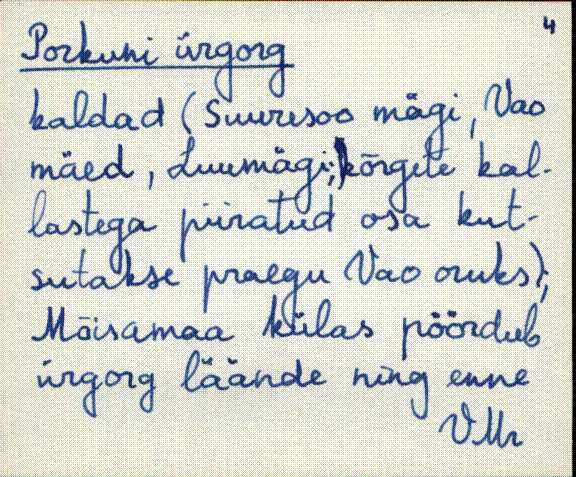 4
Porkuni ürgorg
kaldad (Suuresoo mägi, Vao
mäed, Luumägi; kõrgete kal-
lastega piiratud osa kut-
sutakse praegu Vao oruks);
Mõisamaa külas pöördub
ürgorg läände ning enne
VMr